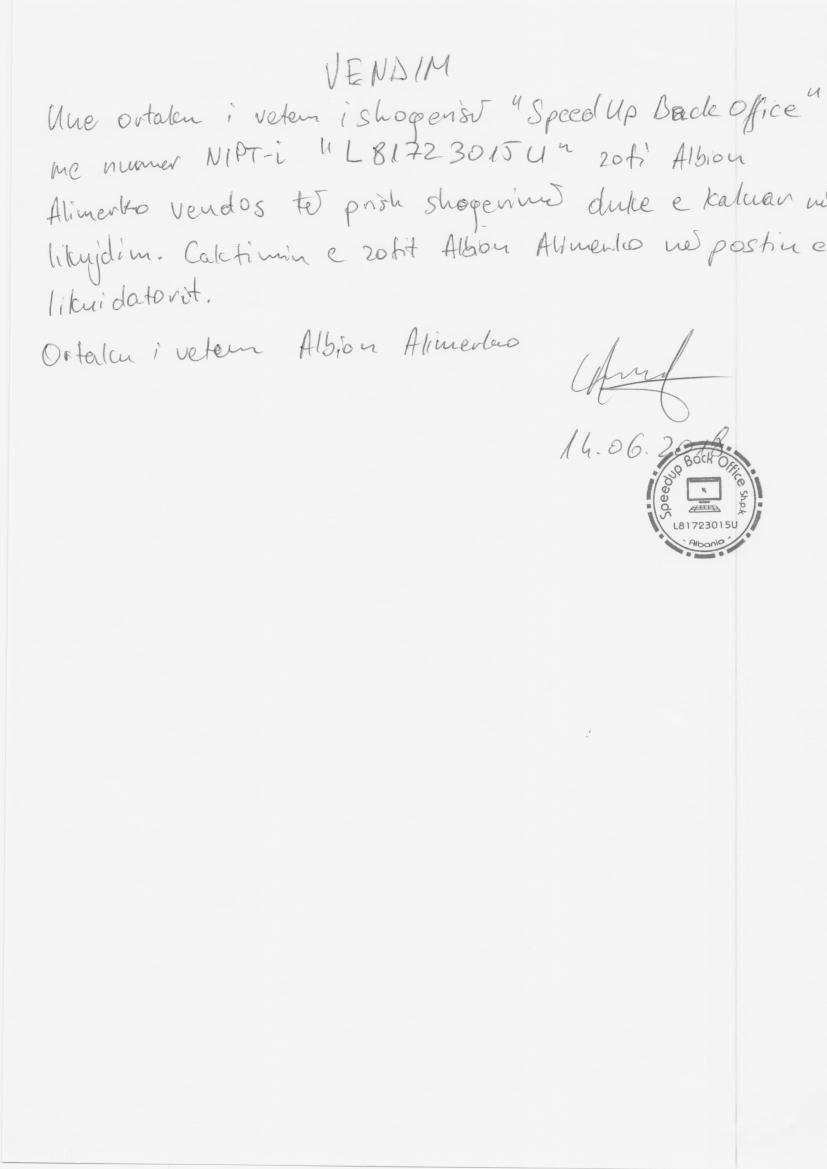 VENDIM
Une ortaku i vetem i shoqerisë "SpeedUp Back Office"
me numer NIPT-i "L81723015U" zoti Albion
Alimerko vendos të prish shoqërinë duke e kaluar në
likujdim. Caktimin e zotit Albion Alimerko në postin e
likuidatorit.
Ortaku i vetem Albion Alimerko
14.06.2018
Speedup Back Office sh.p.k
L81723015U
- Albania -